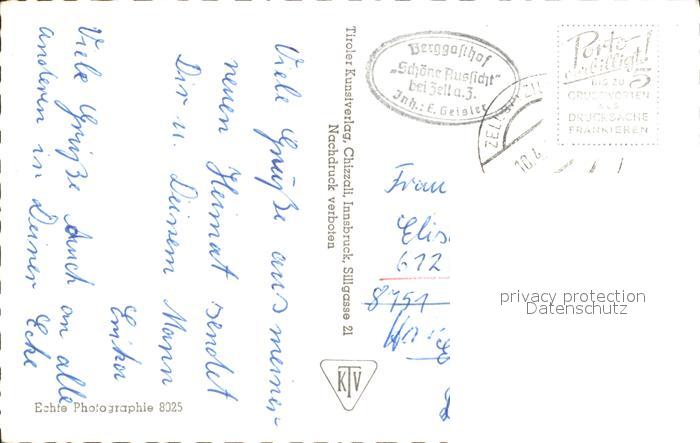 Viele Grüße aus meiner
neuen Heimat sendet
Dir u. Deinem Mann
Erika
Viele Grüße auch an alle
anderen in Deiner Ecke
Echte Photographie 8025
Tiroler Kunstverlag, Chizzali, Innsbruck, Sillgasse 21
Nachdruck verboten
KTV
Berggasthof
„Schöne Aussicht"
bei Zell a.Z.
Inh.: E. Geisler
ZELL
18.4.
Porto-
verbilligt!
BIS ZU 5
GRUSSWORTEN
ALS
DRUCKSACHE
FRANKIEREN
Frau
Elis
612
8751
privacy protection
Datenschutz